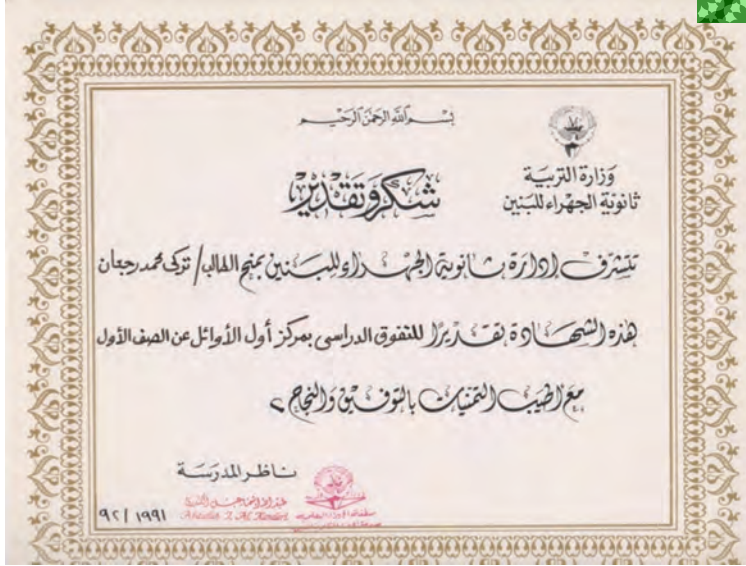 بسم الله الرحمن الرحيم
وزارة التربية
ثانوية الجهراء للبنين
شكر وتقدير
تتشرف إدارة ثانوية الجهراء للبنين بمنح الطالب / تركي محمد رجعان
هذه الشهادة تقديرًا للتفوق الدراسي بمركز أول الأوائل عن الصف الأول
مع أطيب التمنيات بالتوفيق والنجاح
ناظر المدرسة
٩٢ / ١٩٩١